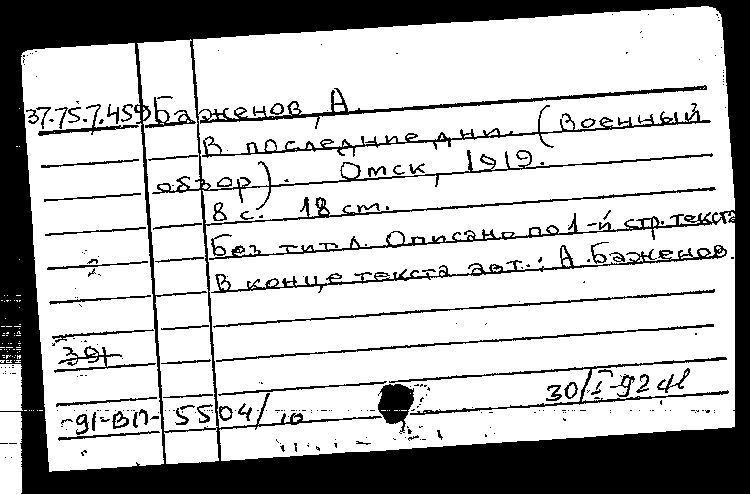 37.75.7.459 Баженов, А.
В последние дни. (Военный
обзор). Омск, 1919.
8 с. 18 см.
Без тит. л. Описано по 1-й стр. текста
В конце текста авт.: А. Баженов.
2
391
91-ВП- 5504/10
30/I-92